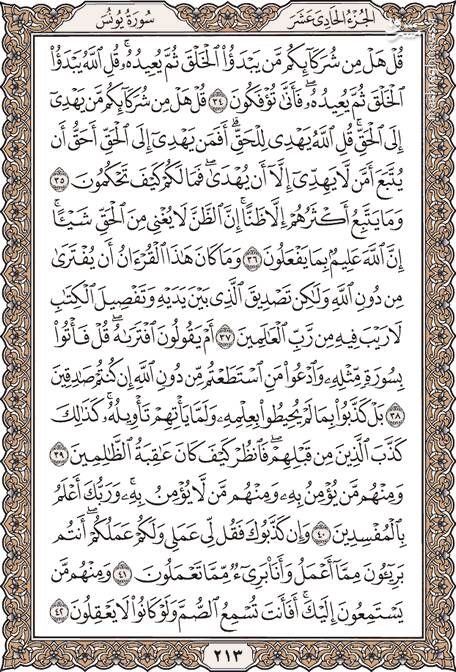 الجزء الحادي عشر
سورة يونس
قُلْ هَلْ مِن شُرَكَآئِكُم مَّن يَبْدَؤُا۟ ٱلْخَلْقَ ثُمَّ يُعِيدُهُۥ ۚ قُلِ ٱللَّهُ يَبْدَؤُا۟
ٱلْخَلْقَ ثُمَّ يُعِيدُهُۥ ۖ فَأَنَّىٰ تُؤْفَكُونَ ٣٤ قُلْ هَلْ مِن شُرَكَآئِكُم مَّن يَهْدِىٓ
إِلَى ٱلْحَقِّ ۚ قُلِ ٱللَّهُ يَهْدِى لِلْحَقِّ ۗ أَفَمَن يَهْدِىٓ إِلَى ٱلْحَقِّ أَحَقُّ أَن
يُتَّبَعَ أَمَّن لَّا يَهِدِّىٓ إِلَّآ أَن يُهْدَىٰ ۖ فَمَا لَكُمْ كَيْفَ تَحْكُمُونَ ٣٥
وَمَا يَتَّبِعُ أَكْثَرُهُمْ إِلَّا ظَنًّا ۚ إِنَّ ٱلظَّنَّ لَا يُغْنِى مِنَ ٱلْحَقِّ شَيْـًٔا ۚ
إِنَّ ٱللَّهَ عَلِيمٌۢ بِمَا يَفْعَلُونَ ٣٦ وَمَا كَانَ هَـٰذَا ٱلْقُرْءَانُ أَن يُفْتَرَىٰ
مِن دُونِ ٱللَّهِ وَلَـٰكِن تَصْدِيقَ ٱلَّذِى بَيْنَ يَدَيْهِ وَتَفْصِيلَ ٱلْكِتَـٰبِ
لَا رَيْبَ فِيهِ مِن رَّبِّ ٱلْعَـٰلَمِينَ ٣٧ أَمْ يَقُولُونَ ٱفْتَرَىٰهُ ۖ قُلْ فَأْتُوا۟
بِسُورَةٍ مِّثْلِهِۦ وَٱدْعُوا۟ مَنِ ٱسْتَطَعْتُم مِّن دُونِ ٱللَّهِ إِن كُنتُمْ صَـٰدِقِينَ
٣٨ بَلْ كَذَّبُوا۟ بِمَا لَمْ يُحِيطُوا۟ بِعِلْمِهِۦ وَلَمَّا يَأْتِهِمْ تَأْوِيلُهُۥ ۚ كَذَٰلِكَ
كَذَّبَ ٱلَّذِينَ مِن قَبْلِهِمْ ۖ فَٱنظُرْ كَيْفَ كَانَ عَـٰقِبَةُ ٱلظَّـٰلِمِينَ ٣٩
وَمِنْهُم مَّن يُؤْمِنُ بِهِۦ وَمِنْهُم مَّن لَّا يُؤْمِنُ بِهِۦ ۚ وَرَبُّكَ أَعْلَمُ
بِٱلْمُفْسِدِينَ ٤٠ وَإِن كَذَّبُوكَ فَقُل لِّى عَمَلِى وَلَكُمْ عَمَلُكُمْ ۖ أَنتُم
بَرِيٓـُٔونَ مِمَّآ أَعْمَلُ وَأَنَا۠ بَرِىٓءٌ مِّمَّا تَعْمَلُونَ ٤١ وَمِنْهُم مَّن
يَسْتَمِعُونَ إِلَيْكَ ۚ أَفَأَنتَ تُسْمِعُ ٱلصُّمَّ وَلَوْ كَانُوا۟ لَا يَعْقِلُونَ ٤٢
٢١٣